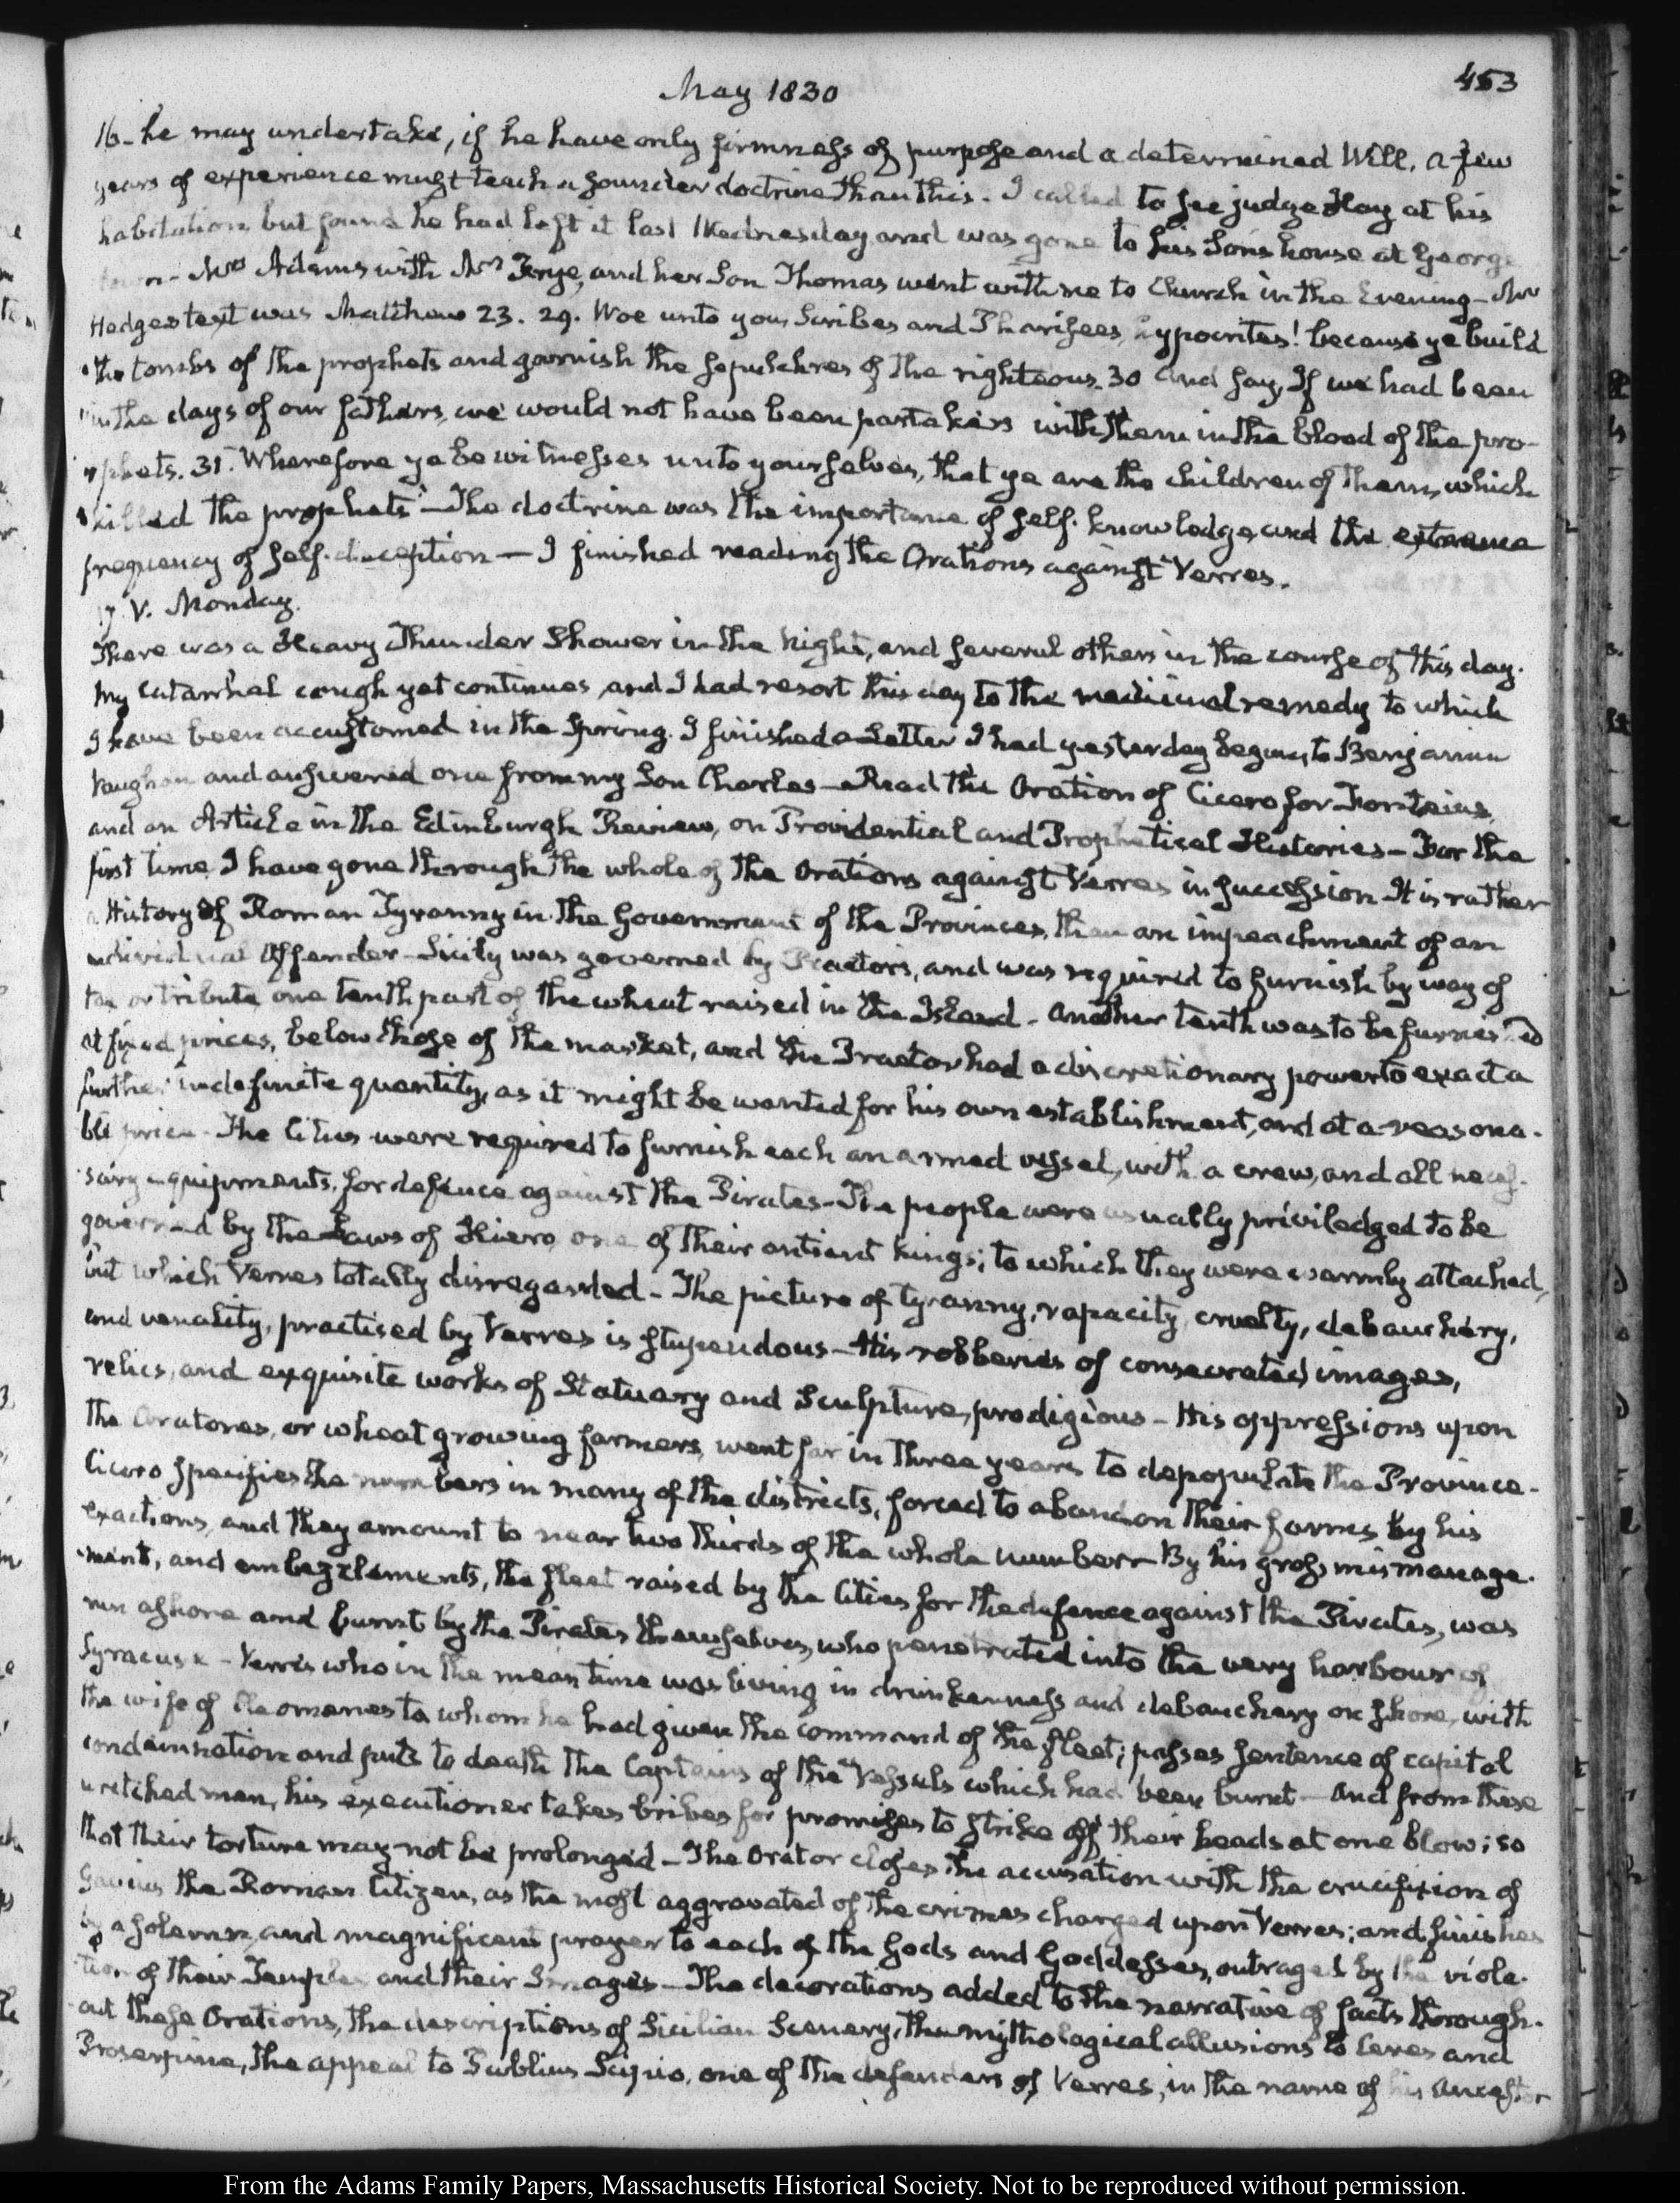 May 1830
453
16 - he may undertake, if he have only firmness of purpose and a determined Will. a few
years of experience must teach a sounder doctrine than this. I called to see judge Hay at his
habitation but found he had left it last Wednesday and was gone to his Son's house at George
town - Mrs Adams with Mrs Frye, and her Son Thomas went with me to Church in the Evening - Mr
Hedges text was Matthew 23. 29. Woe unto you Scribes and Pharisees, hypocrites! because ye build
"the tombs of the prophets and garnish the sepulchres of the righteous. 30 And say, If we had been
"in the days of our fathers, we would not have been partakers with them in the blood of the pro-
"phets. 31. Wherefore ye be witnesses unto yourselves, that ye are the children of them, which
"killed the prophets" - The doctrine was the importance of self-knowledge and the extreme
frequency of self-deception — I finished reading the Orations against Verres.
17. V. Monday.
There was a Heavy Thunder Shower in the Night, and several others in the course of this day.
My Catarrhal cough yet continues, and I had resort this day to the medicinal remedy to which
I have been accustomed in the Spring. I finished a Letter I had yesterday begun, to Benjamin
Vaughan and answered one from my Son Charles - Read the Oration of Cicero for Fonteius,
and an Article in the Edinburgh Review, on Providential and Prophetical Histories - For the
first time I have gone through the whole of the Orations against Verres in succession It is rather
a History of Roman Tyranny in the Government of the Provinces, than an impeachment of an
individual Offender - Sicily was governed by Praetors, and was required to furnish by way of
tax or tribute one tenth part of the wheat raised in the Island - Another tenth was to be furnished
at fixed prices, below those of the market, and the Praetor had a discretionary power to exact a
further indefinite quantity, as it might be wanted for his own establishment, and at a reasona-
ble price - The Cities were required to furnish each an armed vessel, with a crew, and all neces-
sary equipments, for defence against the Pirates - The people were usually priviledged to be
governed by the Laws of Hiero one of their antient kings; to which they were warmly attached,
but which Verres totally disregarded - The picture of tyranny, rapacity, cruelty, debauchery,
and venality, practised by Verres is stupendous - His robberies of consecrated images,
relics, and exquisite works of Statuary and Sculpture, prodigious - His oppressions upon
the Aratores, or wheat growing farmers, went far in three years to depopulate the Province -
Cicero specifies the numbers in many of the districts, forced to abandon their farms by his
exactions, and they amount to near two thirds of the whole number - By his gross mismanage-
ment, and embezzlements, the fleet raised by the Cities for the defence against the Pirates, was
run ashore and burnt by the Pirates themselves, who penetrated into the very harbour of
Syracuse - Verres who in the mean time was living in drunkenness and debauchery on shore, with
the wife of Cleomenes to whom he had given the command of the fleet; passes sentence of capital
condemnation and puts to death the Captains of the Vessels which had been burnt - And from these
wretched men, his executioner takes bribes for promises to strike off their heads at one blow; so
that their torture may not be prolonged - The Orator closes the accusation with the crucifixion of
Gavius the Roman Citizen, as the most aggravated of the crimes charged upon Verres; and finishes
by a solemn, and magnificent prayer to each of the Gods and Goddesses, outraged by the viola-
tion of their Temples and their Images - The decorations added to the narrative of facts through-
out these Orations, the descriptions of Sicilian Scenery, the mythological allusions to Ceres and
Proserpine, the appeal to Publius Scipio, one of the defenders of Verres, in the name of his Ancestor
From the Adams Family Papers, Massachusetts Historical Society. Not to be reproduced without permission.